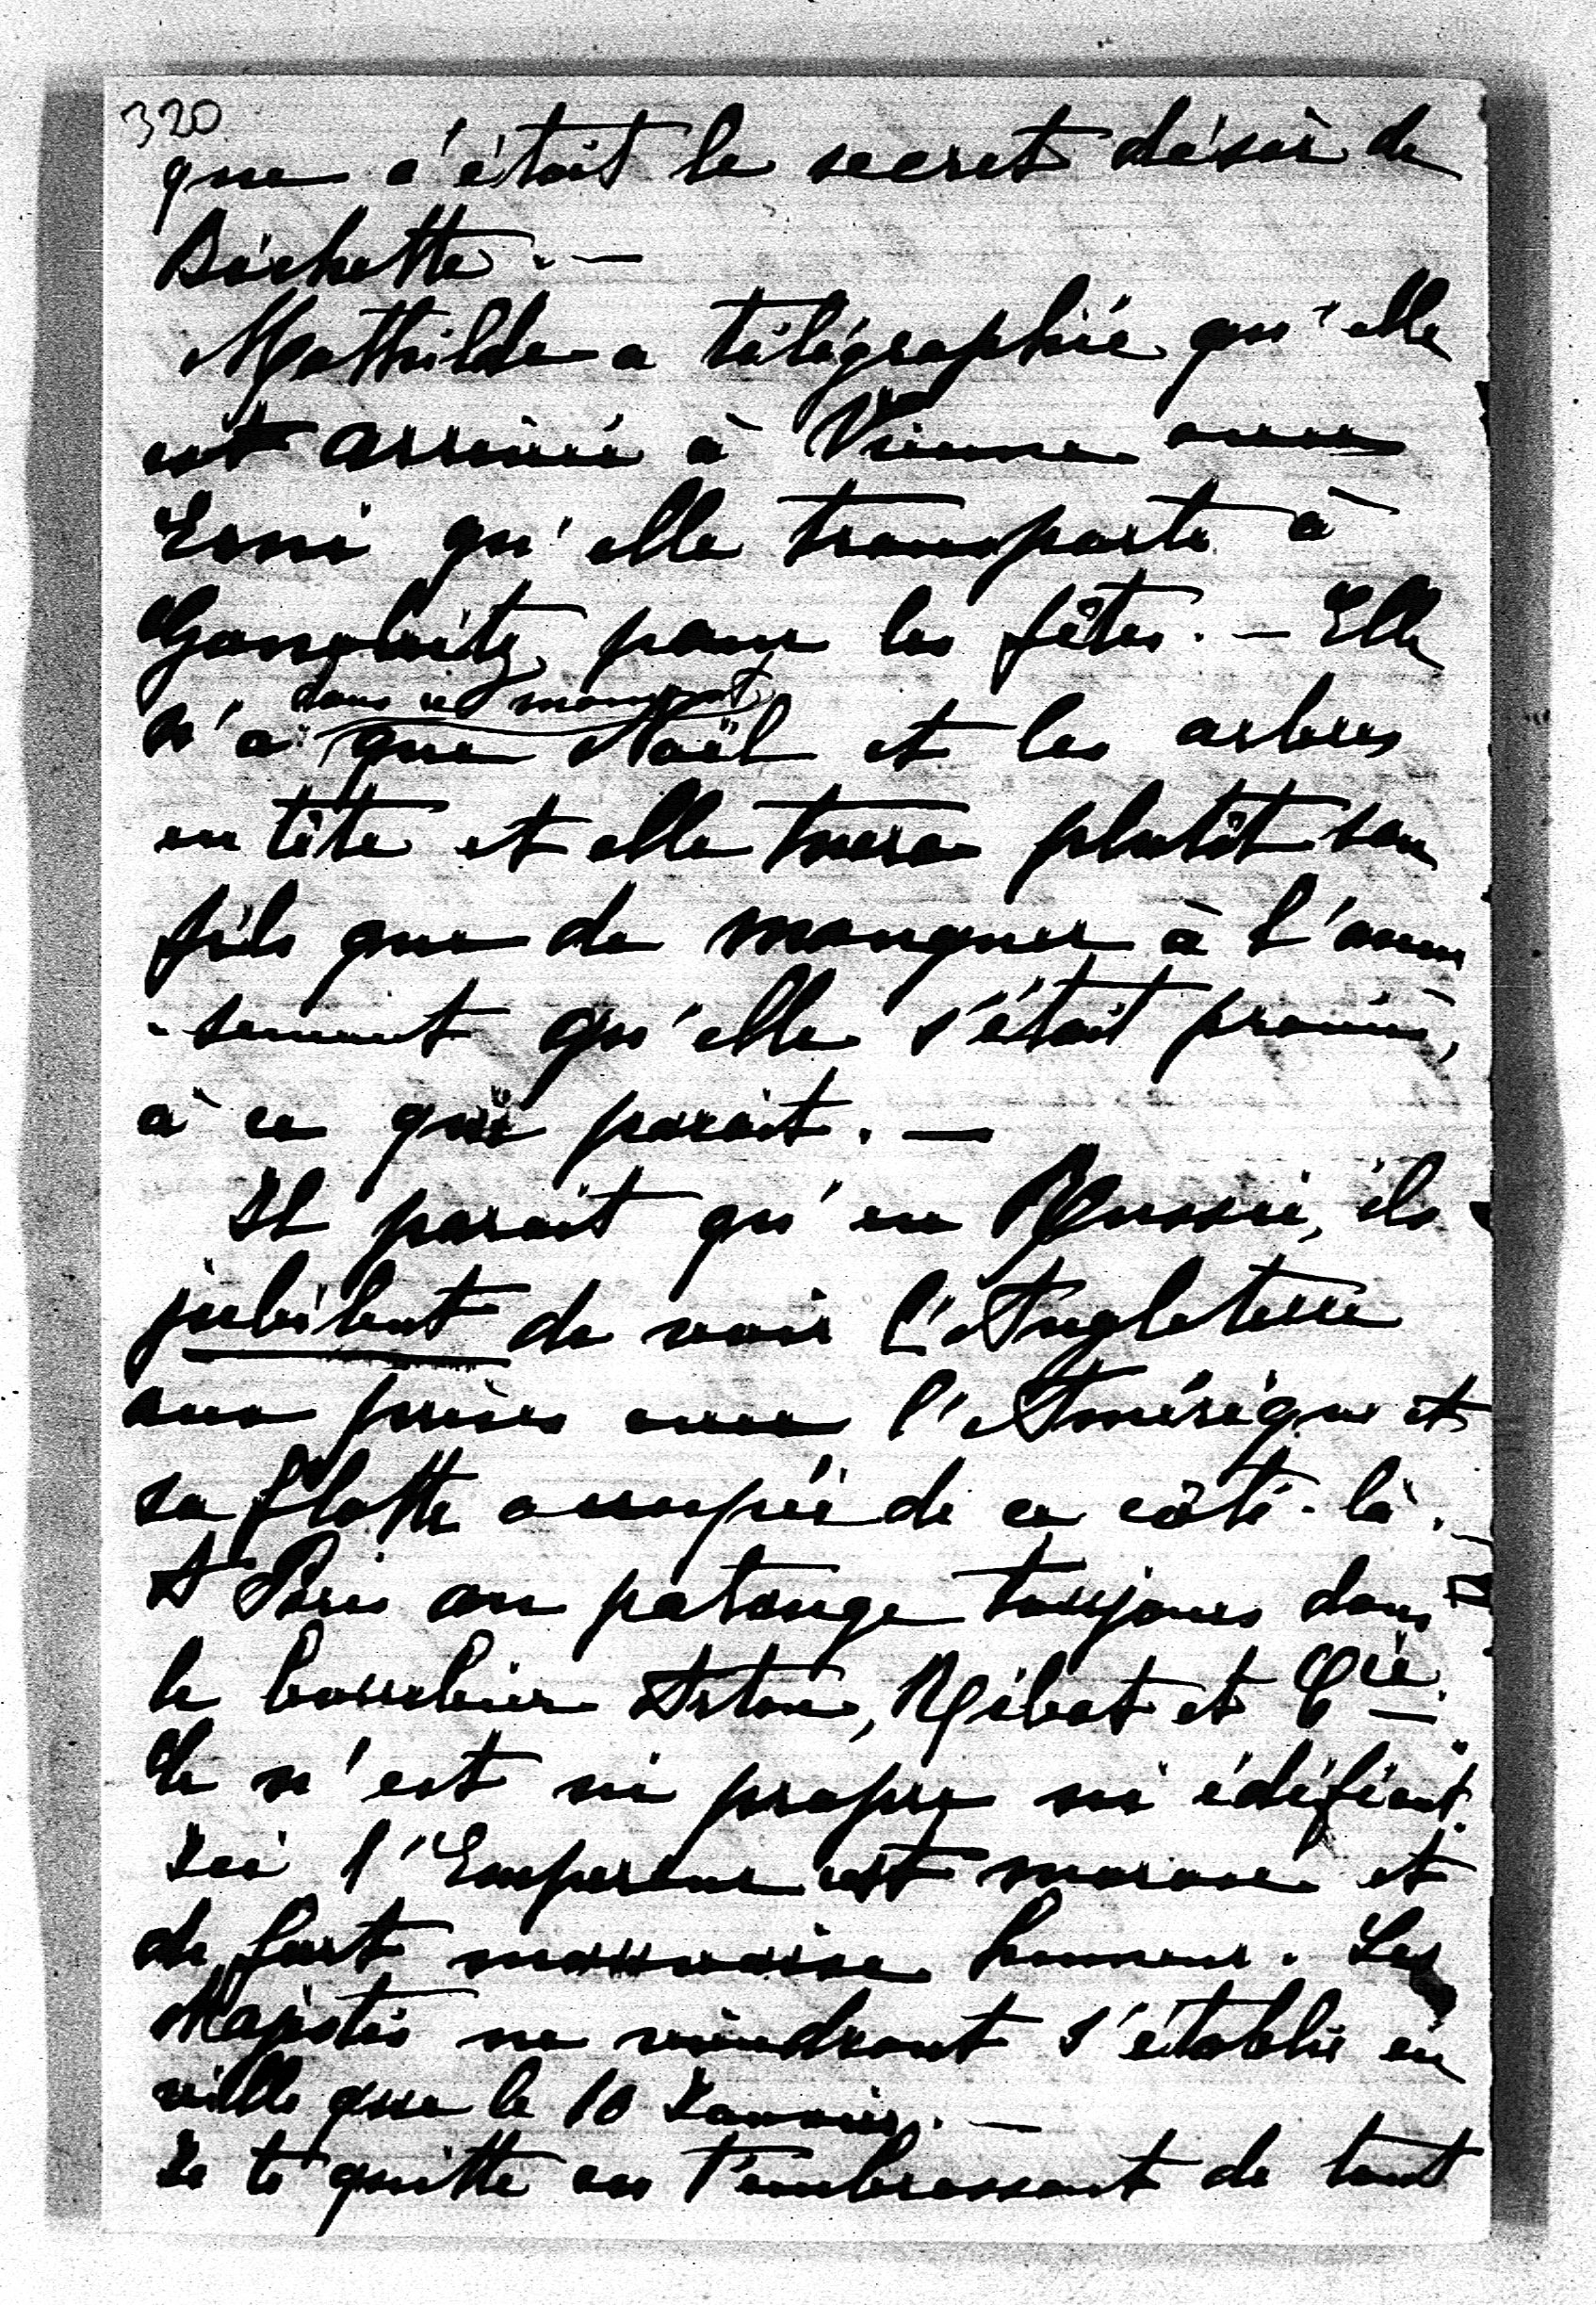 320
que c'était le secret désir de
Bichette. —
Mathilde a télégraphié qu'elle
est arrivée à Vienne avec
Erni qu'elle transporte à
Gonobitz pour les fêtes. — Elle
dans ce moment
n'a que Noël et les arbres
en tête et elle tuera plutôt son
fils que de manquer à l'amu
-sement qu'elle s'était promis,
à ce qui parait. —
Il parait qu'en Russie, ils
jubilent de voir l'Angleterre
aux prises avec l'Amérique et
sa flotte occupée de ce côté-là. —
A Paris on patauge toujours dans
le bourbier Arton, Ribot et Cie.
Ce n'est ni propre ni édifiant.
Ici l'Empereur est morose et
de fort mauvaise humeur. Les
Majestés ne viendront s'établir en
ville que le 10 Janvier. —
Je te quitte en t'embrassant de tout